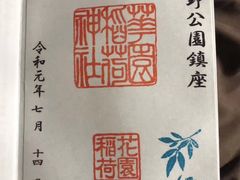 野公園鎮座
華園
稲荷
神社
花園
稲荷
令和元年七月十四